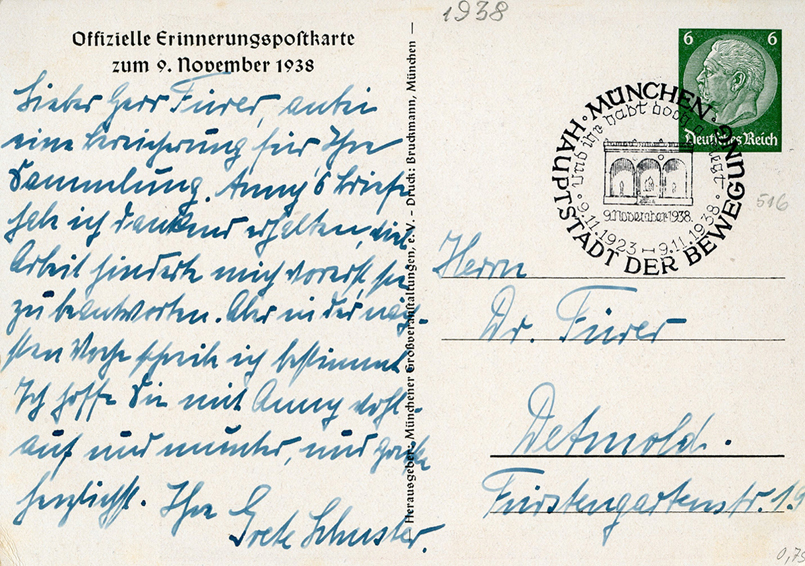 1938
Offizielle Erinnerungspostkarte
zum 9. November 1938
Lieber Herr Fürer, anbei
eine Bereicherung für Ihre
Sammlung. Anny's Briefe
hab ich dankend erhalten, viel
Arbeit hinderte mich vorerst, sie
zu beantworten. Aber in der näch-
sten Woche schreibe ich bestimmt.
Ich hoffe Sie mit Anny wohl-
auf und munter, und grüße
herzlichst. Ihre
Grete Schuster.
Herausgeber: Münchener Großveranstaltungen, e. V. – Druck: Bruckmann, München –
6 6
Deutsches Reich
MÜNCHEN · HAUPTSTADT DER BEWEGUNG
Und ihr habt doch gesiegt
9. November 1938.
9.11.1923 – 9.11.1938
516
Herrn
Dr. Fürer
Detmold.
Fürstengartenstr. 19
0,75